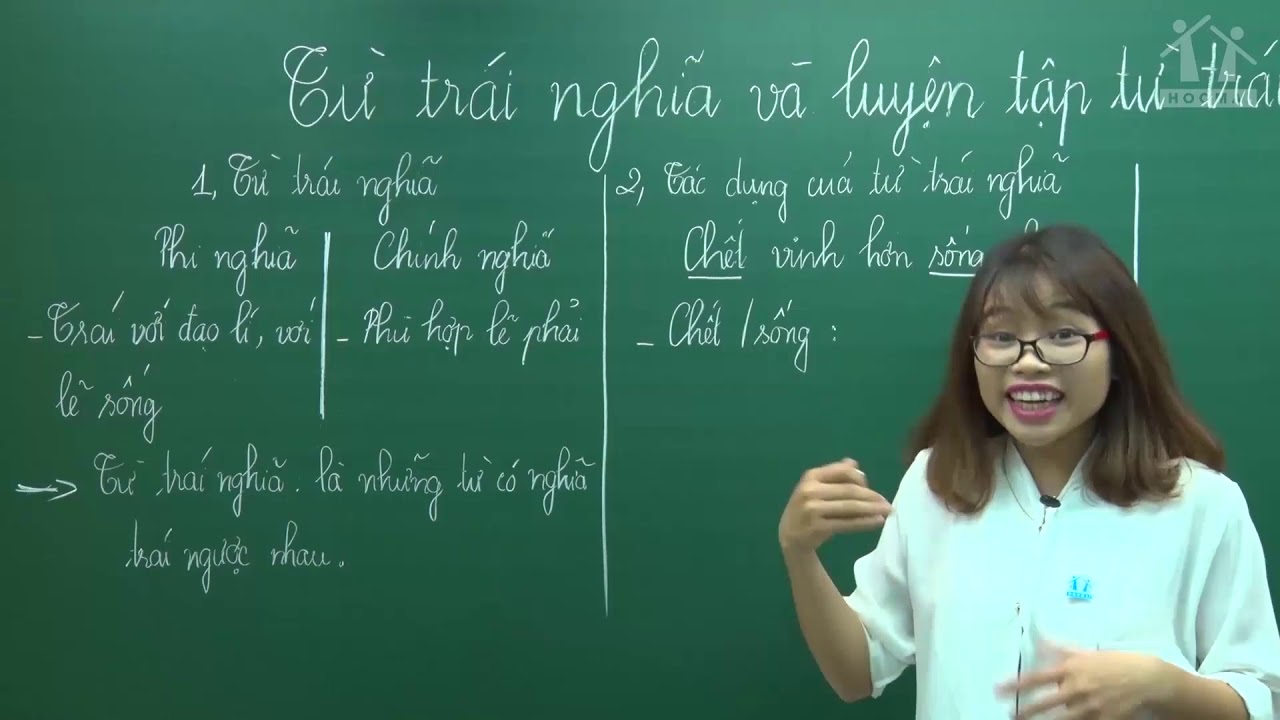 Từ trái nghĩa và luyện tập từ trái
1, Từ trái nghĩa
Phi nghĩa
Chính nghĩa
- Trái với đạo lí, với
lẽ sống
- Phù hợp lẽ phải
→ Từ trái nghĩa là những từ có nghĩa
trái ngược nhau.
2, Tác dụng của từ trái nghĩa
Chết vinh hơn sống
- Chết / sống :